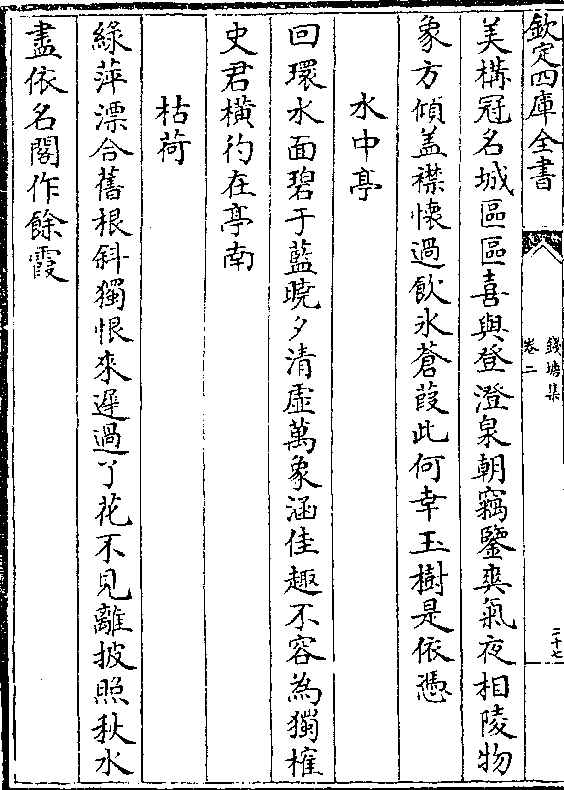 欽定四庫全書
錢塘集
卷二
二十七
美構冠名城區區喜與登澄泉朝竊鑒爽氣夜相陵物
象方傾盖襟懷過飲氷蒼葭此何幸玉樹是依憑
水中亭
回環水面碧于藍曉夕清虛萬象涵佳趣不容為獨榷
史君横彴在亭南
枯荷
綠萍漂合舊根斜獨恨來遲過了花不見離披照秋水
盡依名閣作餘霞